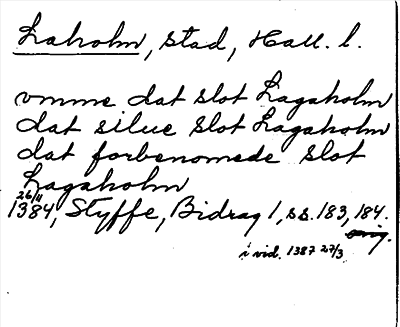 Laholm, stad, Hall. l.
vmme dat slot Lagaholm
dat silue slot Lagaholm
dat forbenomede slot
Lagaholm
26/11
1384, Styffe, Bidrag 1, ss. 183, 184.
orig.
i vid. 1387 27/3